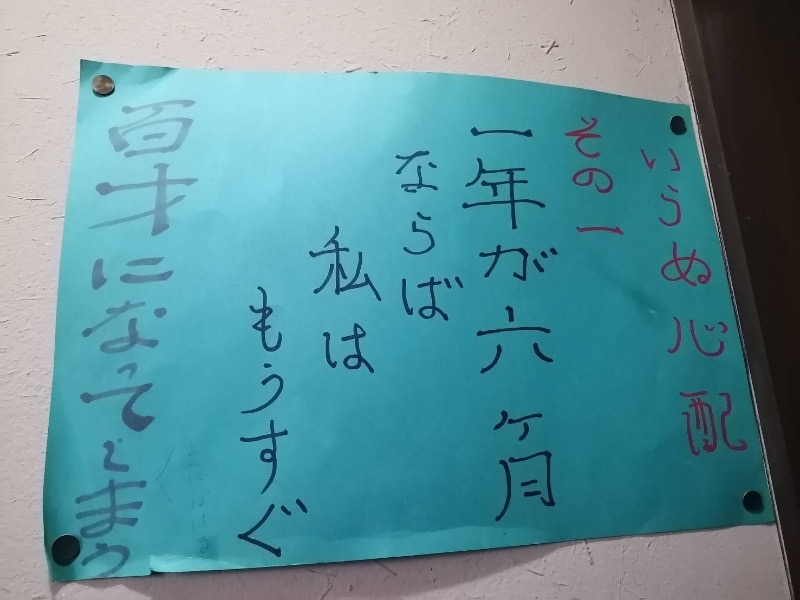 いらぬ心配
その一
一年が六ヶ月
ならば
私は
もうすぐ
百才になってしまう